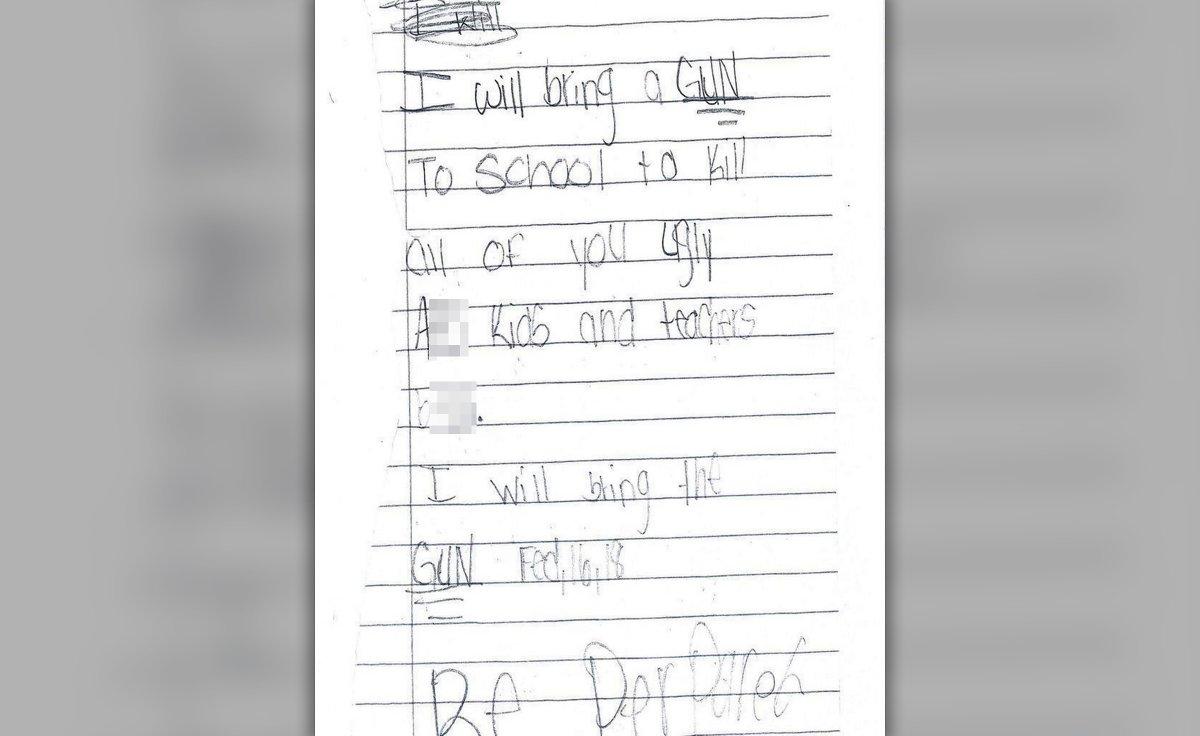 I will bring a GUN
To School to kill
all of you ugly
Kids and teachers
I will bring the
GUN Feb,16,18
Be PerPared